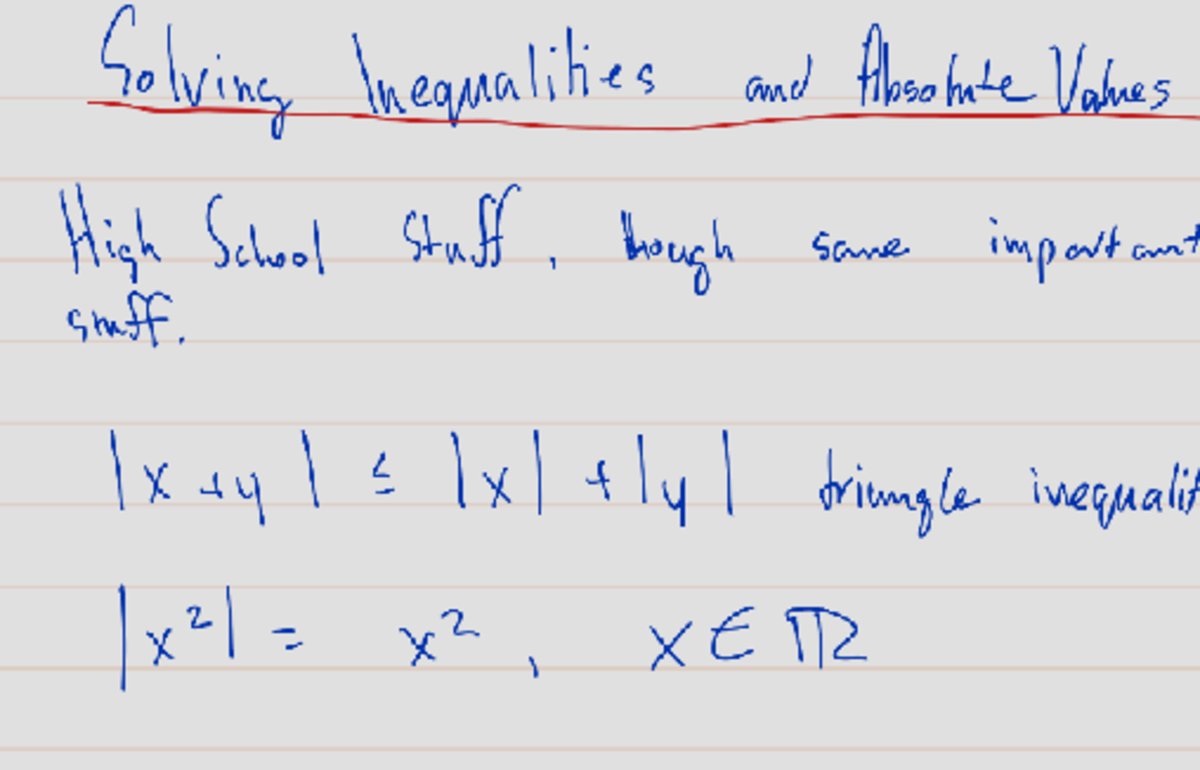 Solving Inequalities and Absolute Values
High School Stuff, though some important
stuff.
|x + y| ≤ |x| + |y| triangle inequalit
|x²| = x², x ∈ ℝ